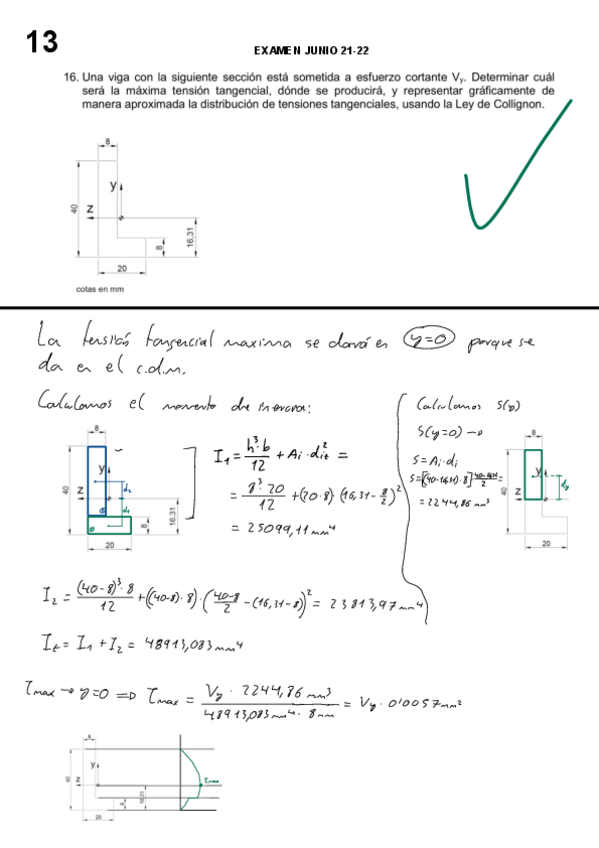 13
EXAMEN JUNIO 21-22
16. Una viga con la siguiente sección está sometida a esfuerzo cortante Vy. Determinar cuál
será la máxima tensión tangencial, dónde se producirá, y representar gráficamente de
manera aproximada la distribución de tensiones tangenciales, usando la Ley de Collignon.
8
y
40
z
16,31
8
20
cotas en mm
La tensión tangencial maxima se dará en y=0 porque se
da en el c.d.m.
Calculamos el momento de inercia:
8
y
40
z
d2
d1
②
①
16,31
8
20
I1 = h³·b/12 + Ai·di² =
= 8³·20/12 + (20·8)·(16,31 - 8/2)²
= 25099,11 mm⁴
Calculamos S(y)
S(y=0) →
S = Ai·di
S = [(40-16,31)·8]·(40-16,31)/2 =
= 2244,86 mm³
8
y
40
z
dy
20
I2 = (40-8)³·8/12 + ((40-8)·8)·((40-8)/2 - (16,31-8))² = 23813,97 mm⁴
It = I1 + I2 = 48913,083 mm⁴
τmax → y=0 ⇒ τmax = Vy · 2244,86 mm³ / 48913,083 mm⁴ · 8 mm = Vy · 0'0057 mm²
8
y
40
z
16,31
8
20
τmax